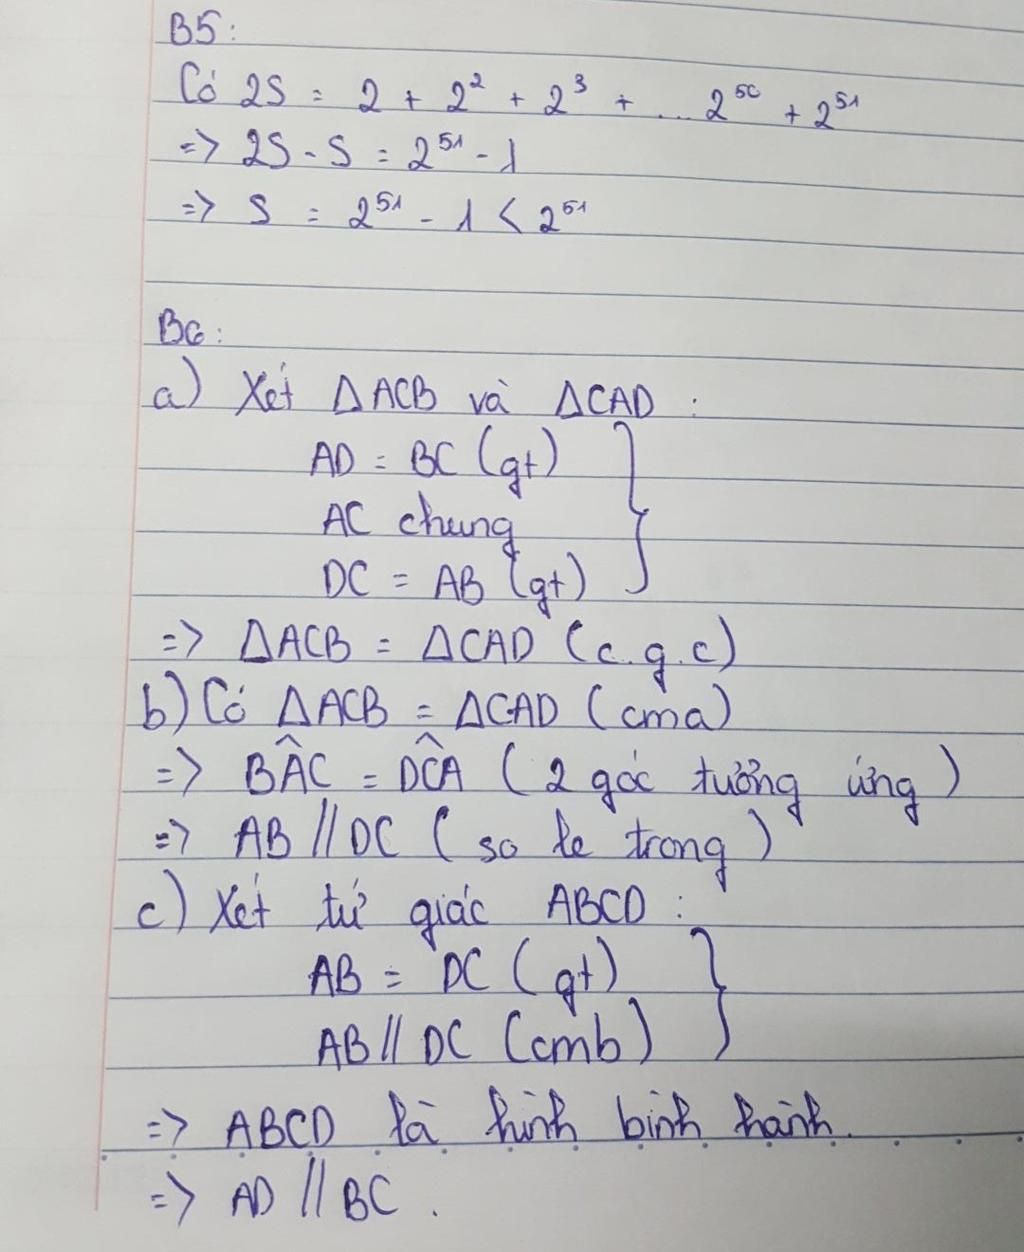 B5:
Có 2S = 2 + 2² + 2³ + ... 2⁵⁰ + 2⁵¹
=> 2S - S = 2⁵¹ - 1
=> S = 2⁵¹ - 1 < 2⁵¹
B6:
a) Xét ΔACB và ΔCAD :
AD = BC (gt)
AC chung
DC = AB (gt)
=> ΔACB = ΔCAD (c.g.c)
b) Có ΔACB = ΔCAD (cma)
=> BÂC = DĈA ( 2 góc tương ứng )
=> AB // DC ( so le trong )
c) Xét tứ giác ABCD :
AB = DC (gt)
AB // DC (cmb)
=> ABCD là hình bình hành.
=> AD // BC .